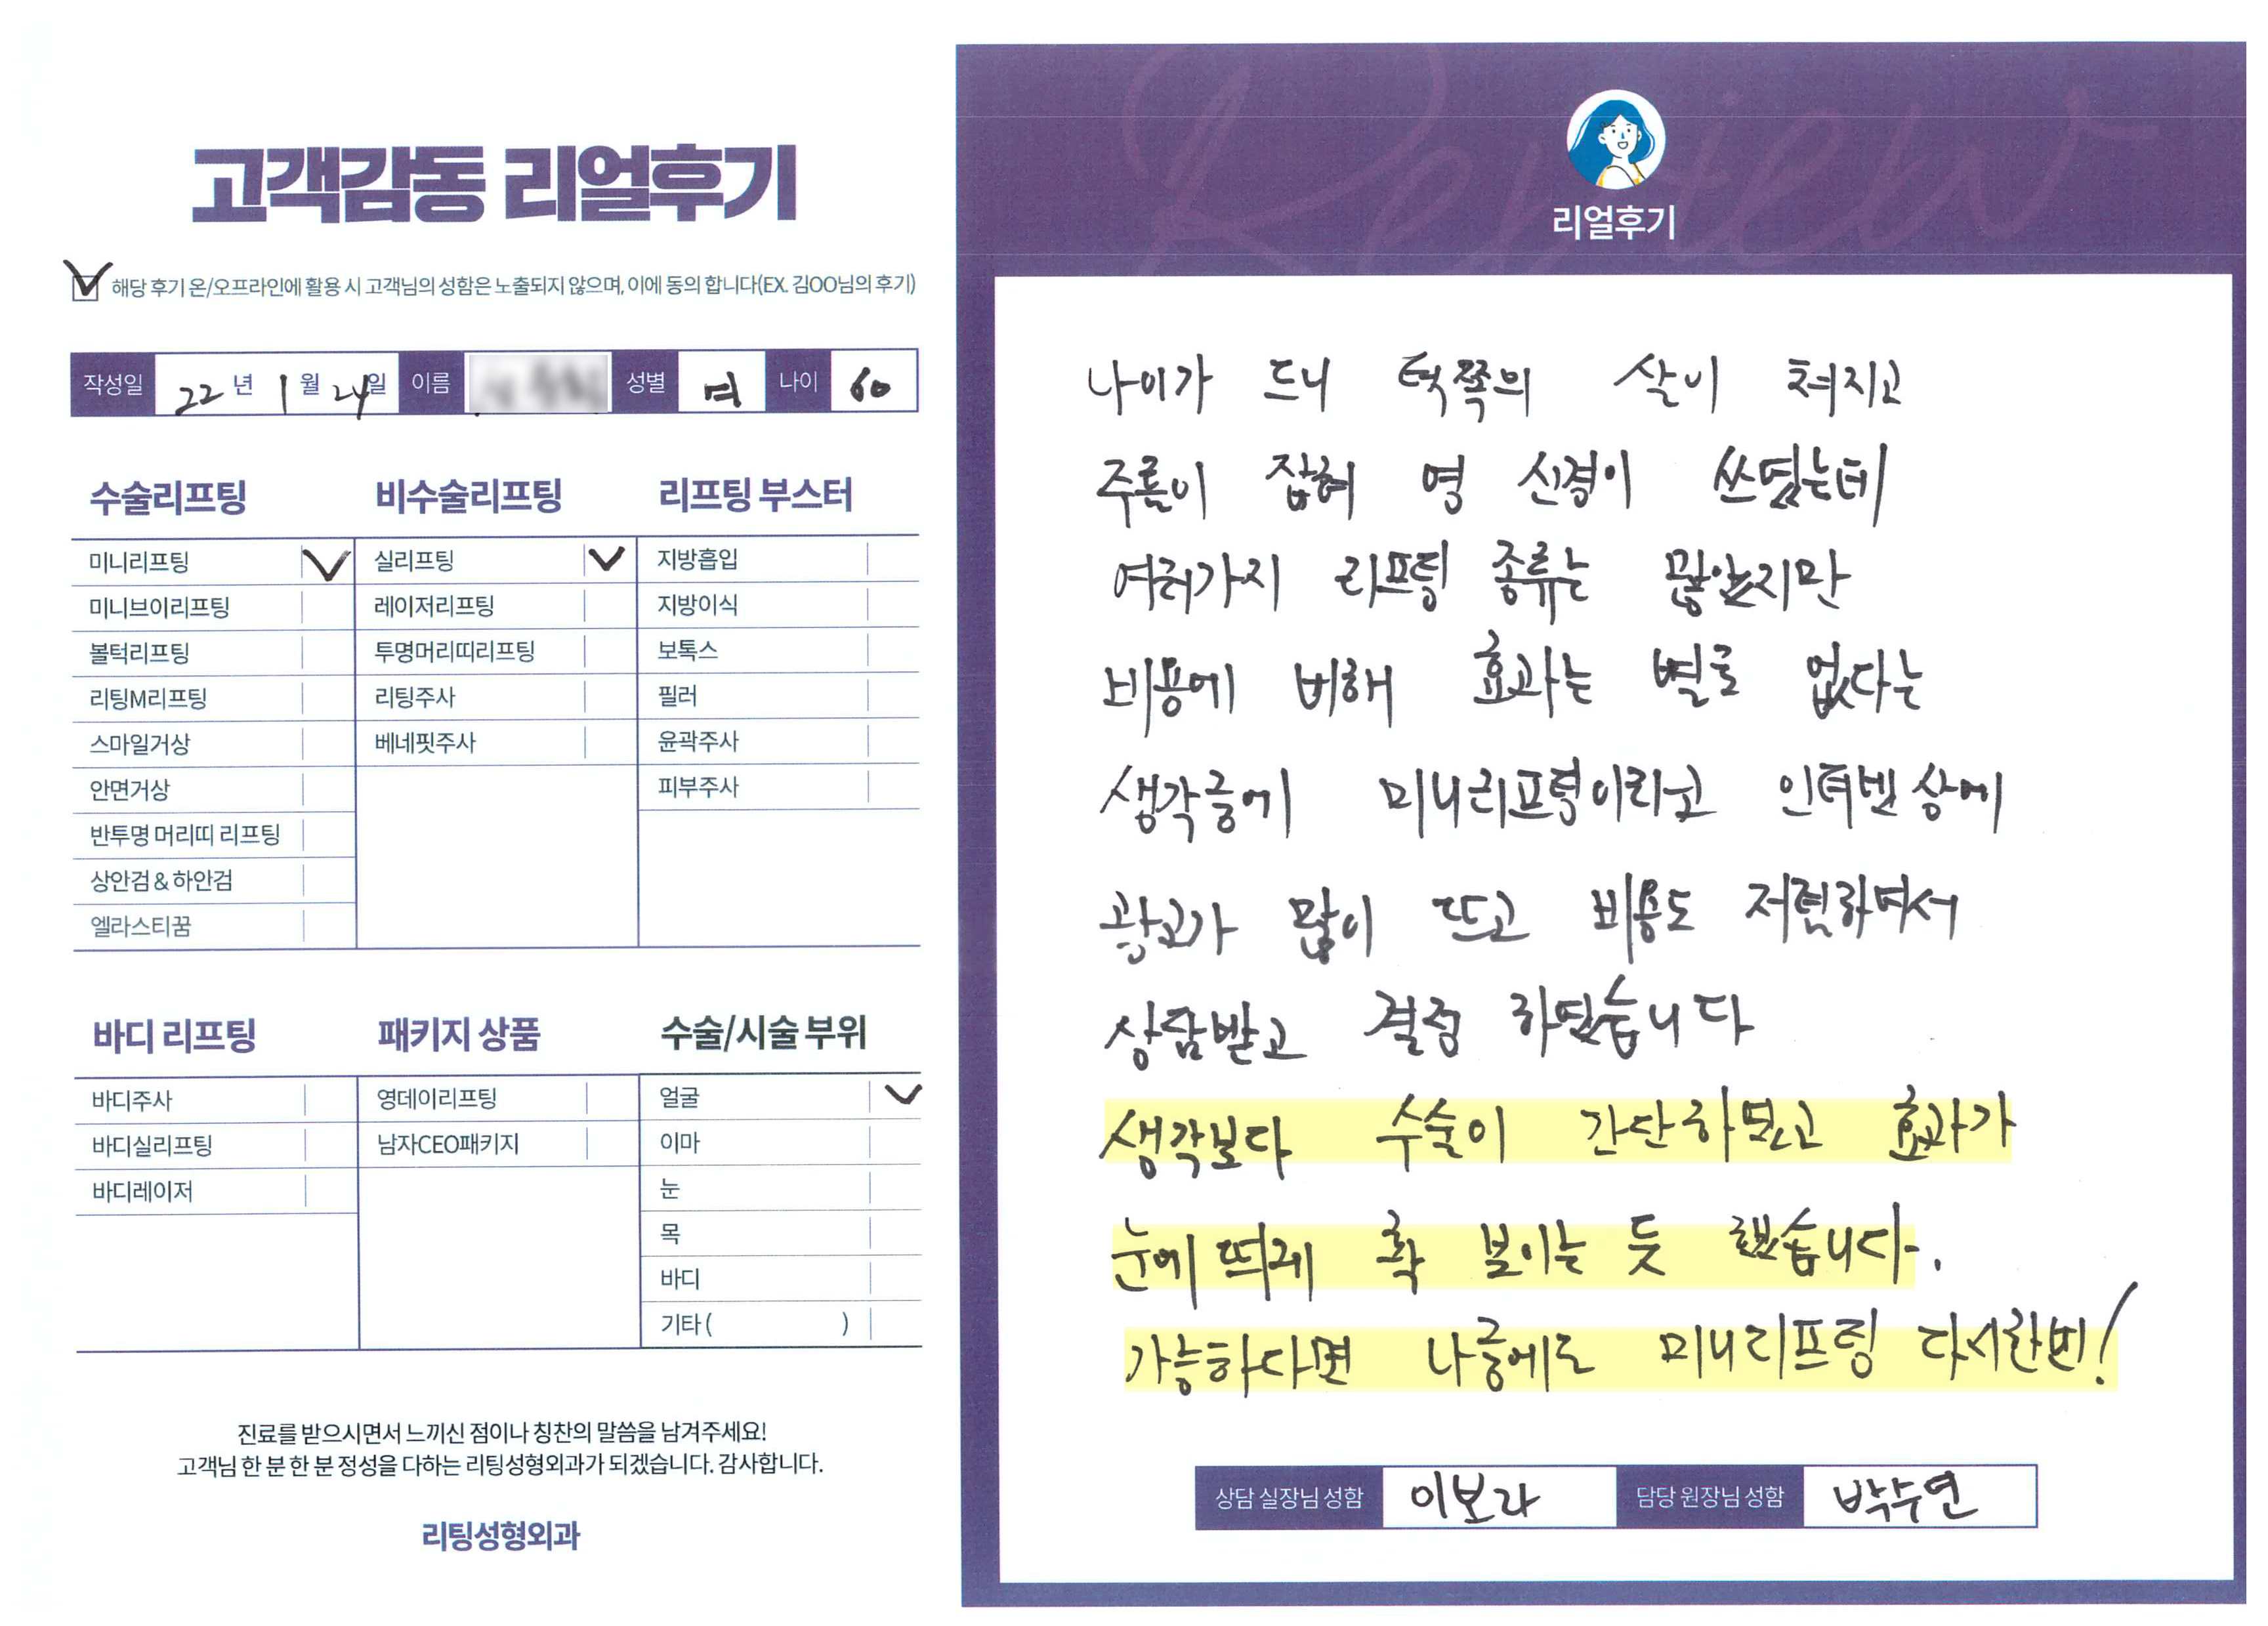 고객감동 리얼후기
해당 후기 온/오프라인에 활용 시 고객님의 성함은 노출되지 않으며, 이에 동의 합니다(EX. 김OO님의 후기)
작성일 22년 1월 24일 이름 성별 여 나이 60
수술리프팅
미니리프팅
미니브이리프팅
볼턱리프팅
리팅M리프팅
스마일거상
안면거상
반투명 머리띠 리프팅
상안검 & 하안검
엘라스티꿈
비수술리프팅
실리프팅
레이저리프팅
투명머리띠리프팅
리팅주사
베네핏주사
리프팅 부스터
지방흡입
지방이식
보톡스
필러
윤곽주사
피부주사
바디 리프팅
바디주사
바디실리프팅
바디레이저
패키지 상품
영데이리프팅
남자CEO패키지
수술/시술 부위
얼굴
이마
눈
목
바디
기타 ( )
진료를 받으시면서 느끼신 점이나 칭찬의 말씀을 남겨주세요!
고객님 한 분 한 분 정성을 다하는 리팅성형외과가 되겠습니다. 감사합니다.
리팅성형외과
Review
리얼후기
나이가 드니 턱쪽의 살이 쳐지고
주름이 잡혀 영 신경이 쓰였는데
여러가지 리프팅 종류는 많았지만
비용에 비해 효과는 별로 없다는
생각중에 미니리프팅이라고 인터넷 상에
광고가 많이 뜨고 비용도 저렴하여서
상담받고 결정 하였습니다
생각보다 수술이 간단하였고 효과가
눈에 띄게 확 보이는 듯 했습니다.
가능하다면 나중에도 미니리프팅 다시한번!
상담 실장님 성함 이보라 담당 원장님 성함 박수연